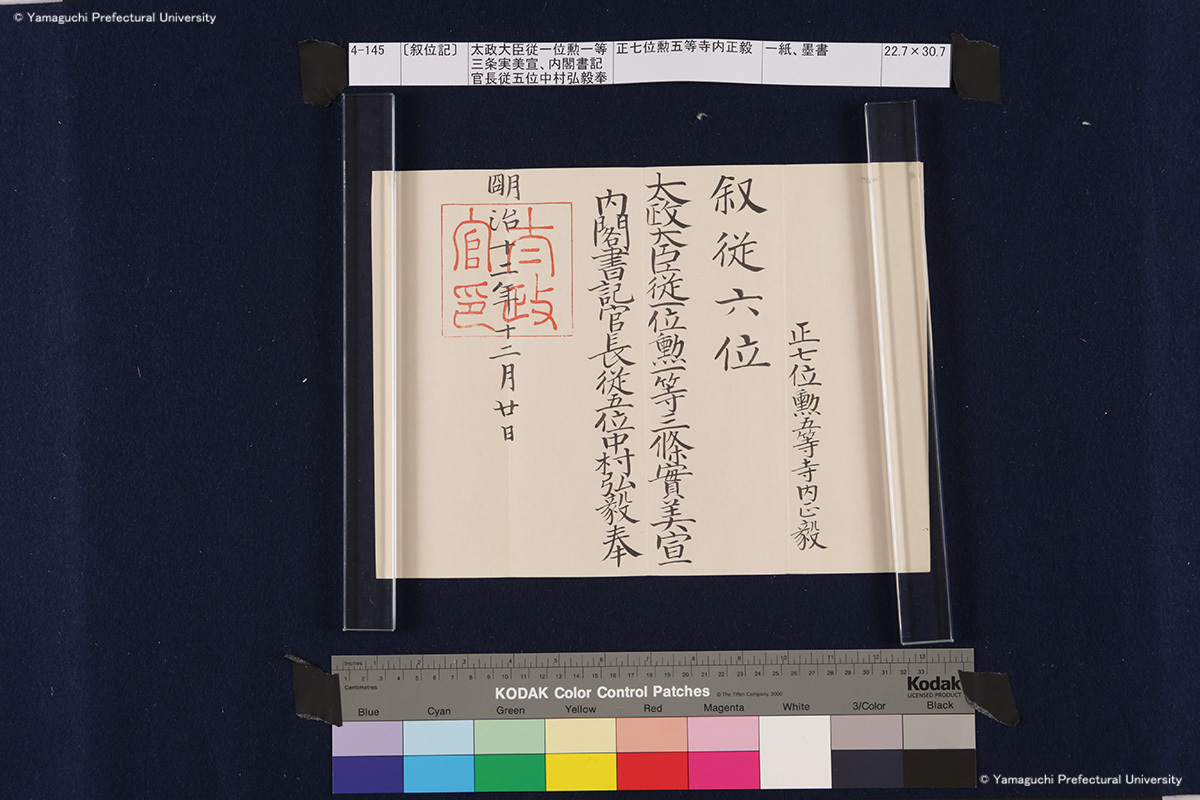 © Yamaguchi Prefectural University
4-145
〔叙位記〕
太政大臣従一位勲一等
三条実美宣、内閣書記
官長従五位中村弘毅奉
正七位勲五等寺内正毅
一紙、墨書
22.7×30.7
正七位勲五等寺内正毅
叙従六位
太政大臣従一位勲一等三條實美宣
内閣書記官長従五位中村弘毅奉
明治十二年十二月廿日
太政
官印
Inches 1 2 3 4 5 6 7 8 9 10 11 12 13
1 2 3 4 5 6 7 8 9 10 11 12 13 14 15 16 17 18 19 20 21 22 23 24 25 26 27 28 29 30 31 32 33
Centimetres
KODAK Color Control Patches © The Tiffen Company, 2000
Kodak
LICENSED PRODUCT
Blue Cyan Green Yellow Red Magenta White 3/Color Black
© Yamaguchi Prefectural University